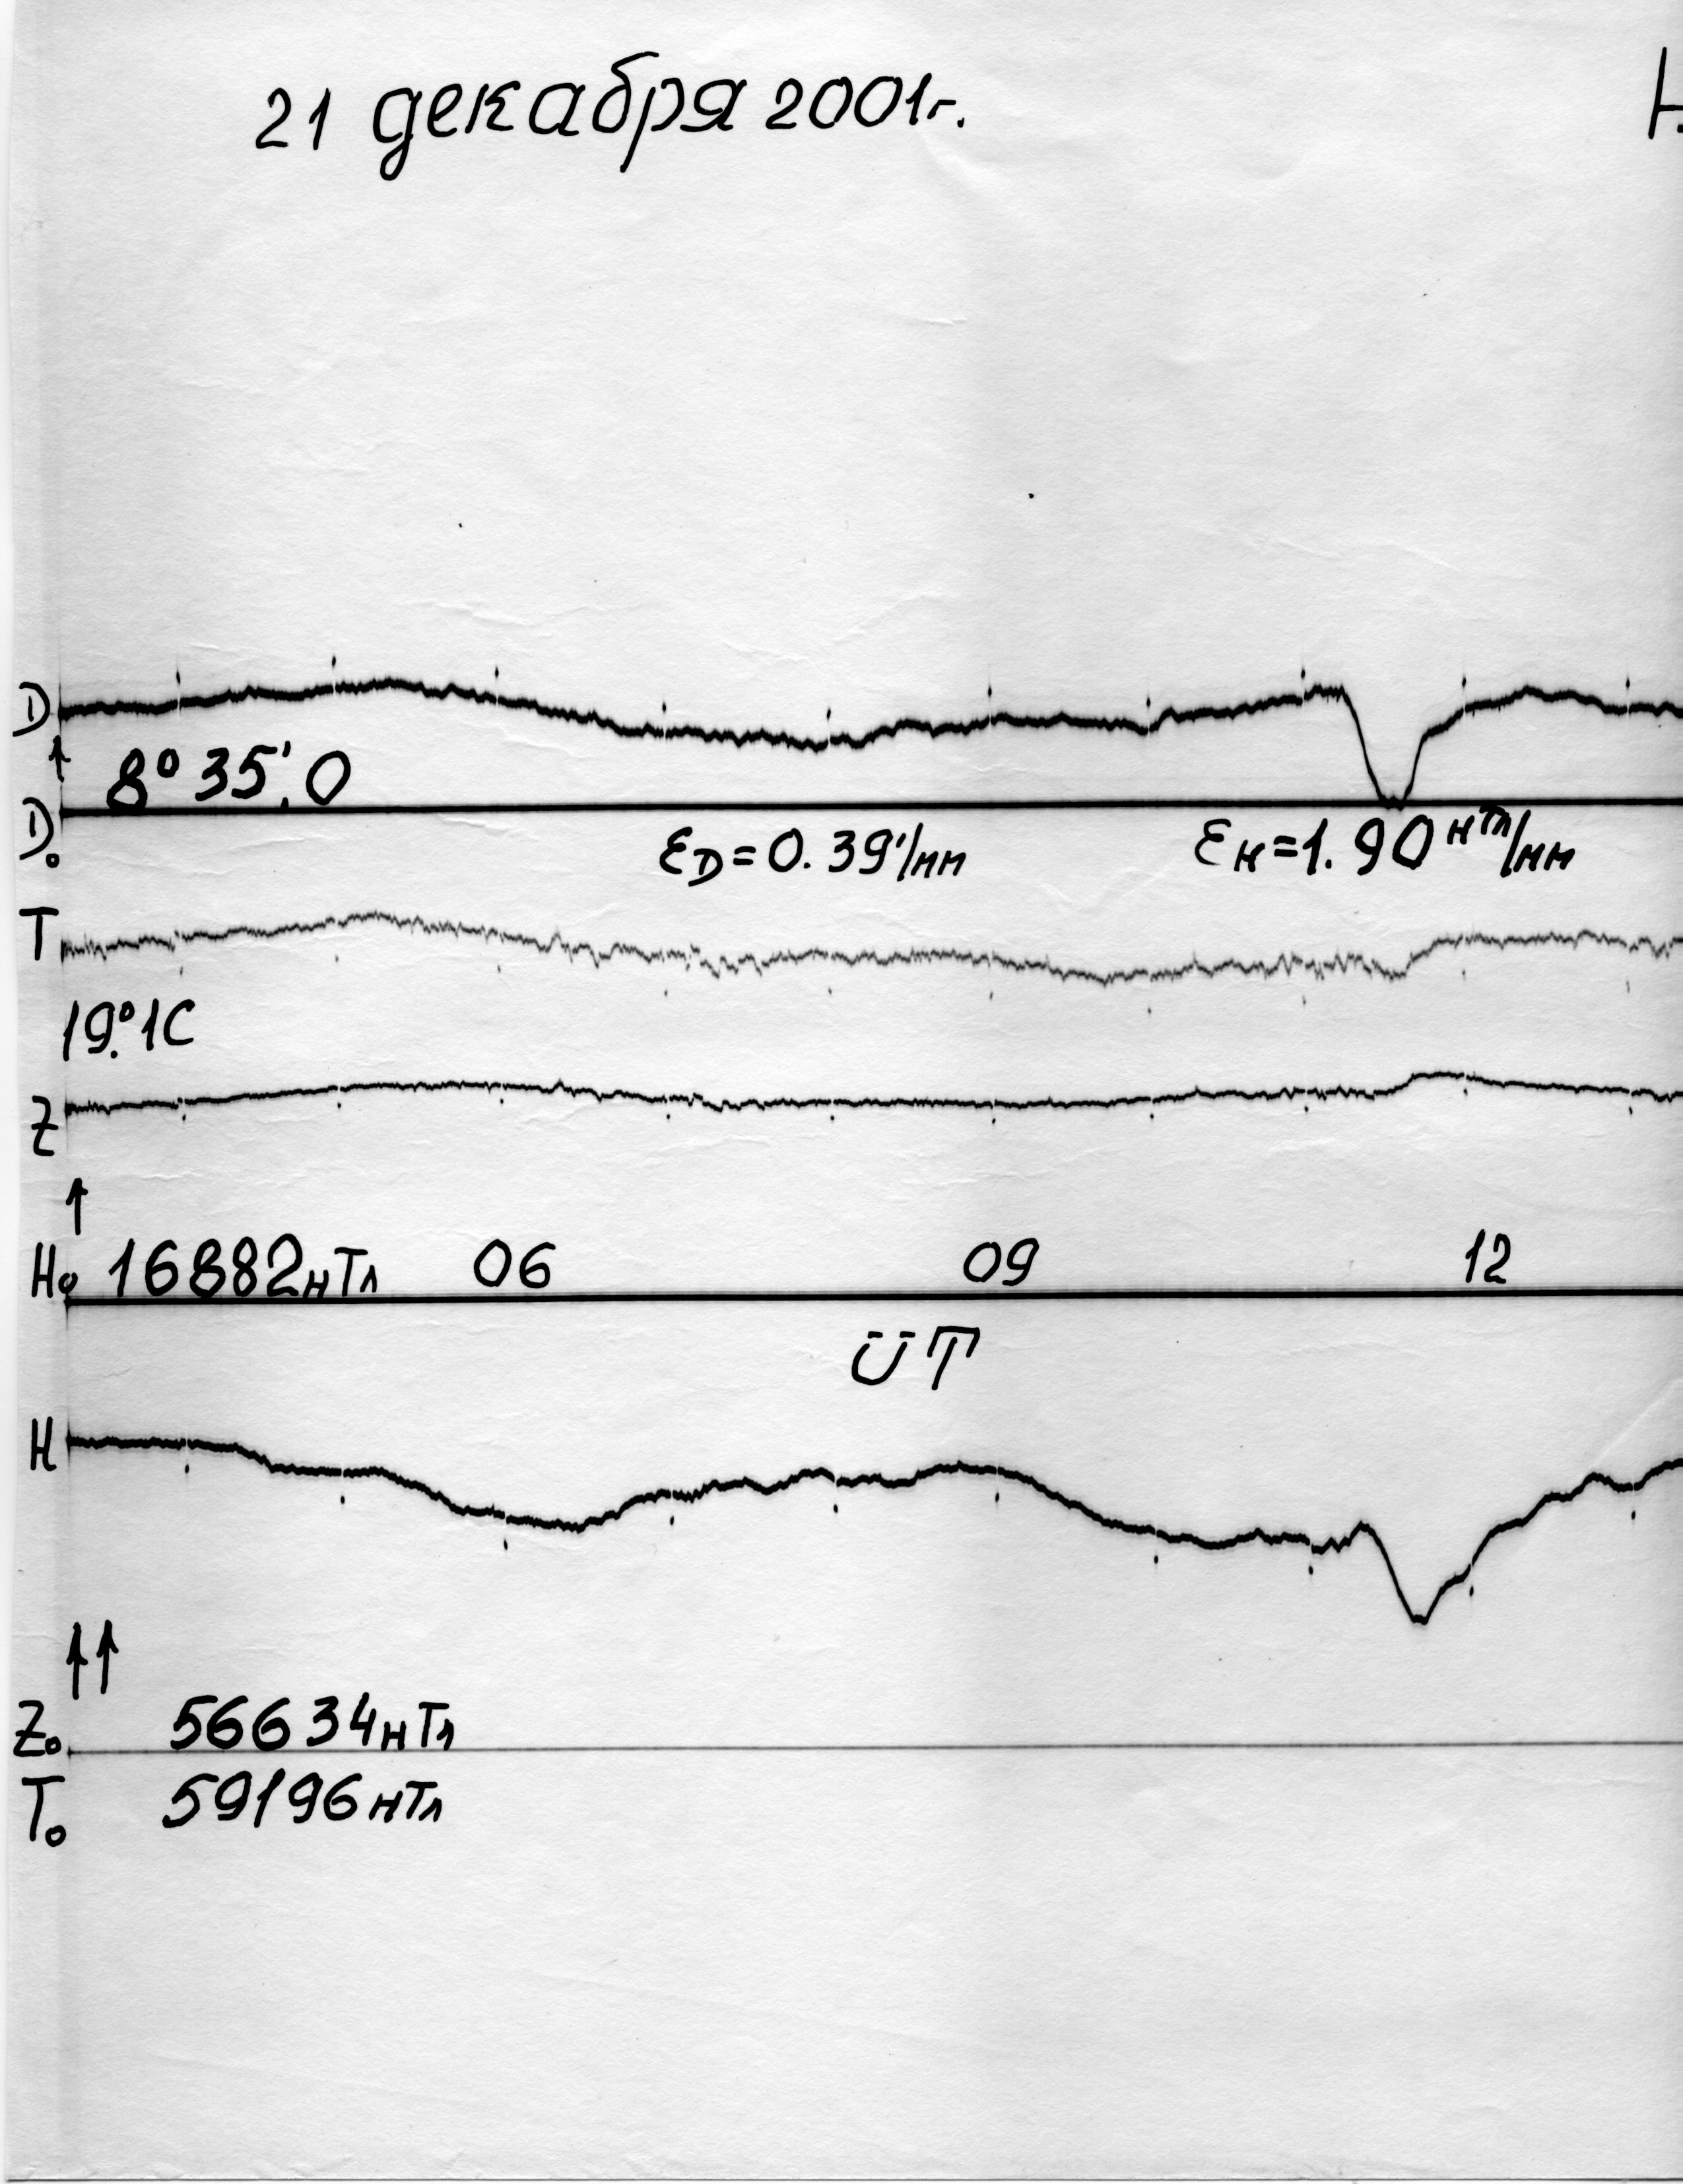 21 декабря 2001г.
D
8° 35'.0
D₀
ED=0.39'/мм
EH=1.90 нТл/мм
T
19.°1C
Z
H₀ 16882нТл 06 09 12
UT
H
Z₀ 56634нТл
T₀ 59196нТл